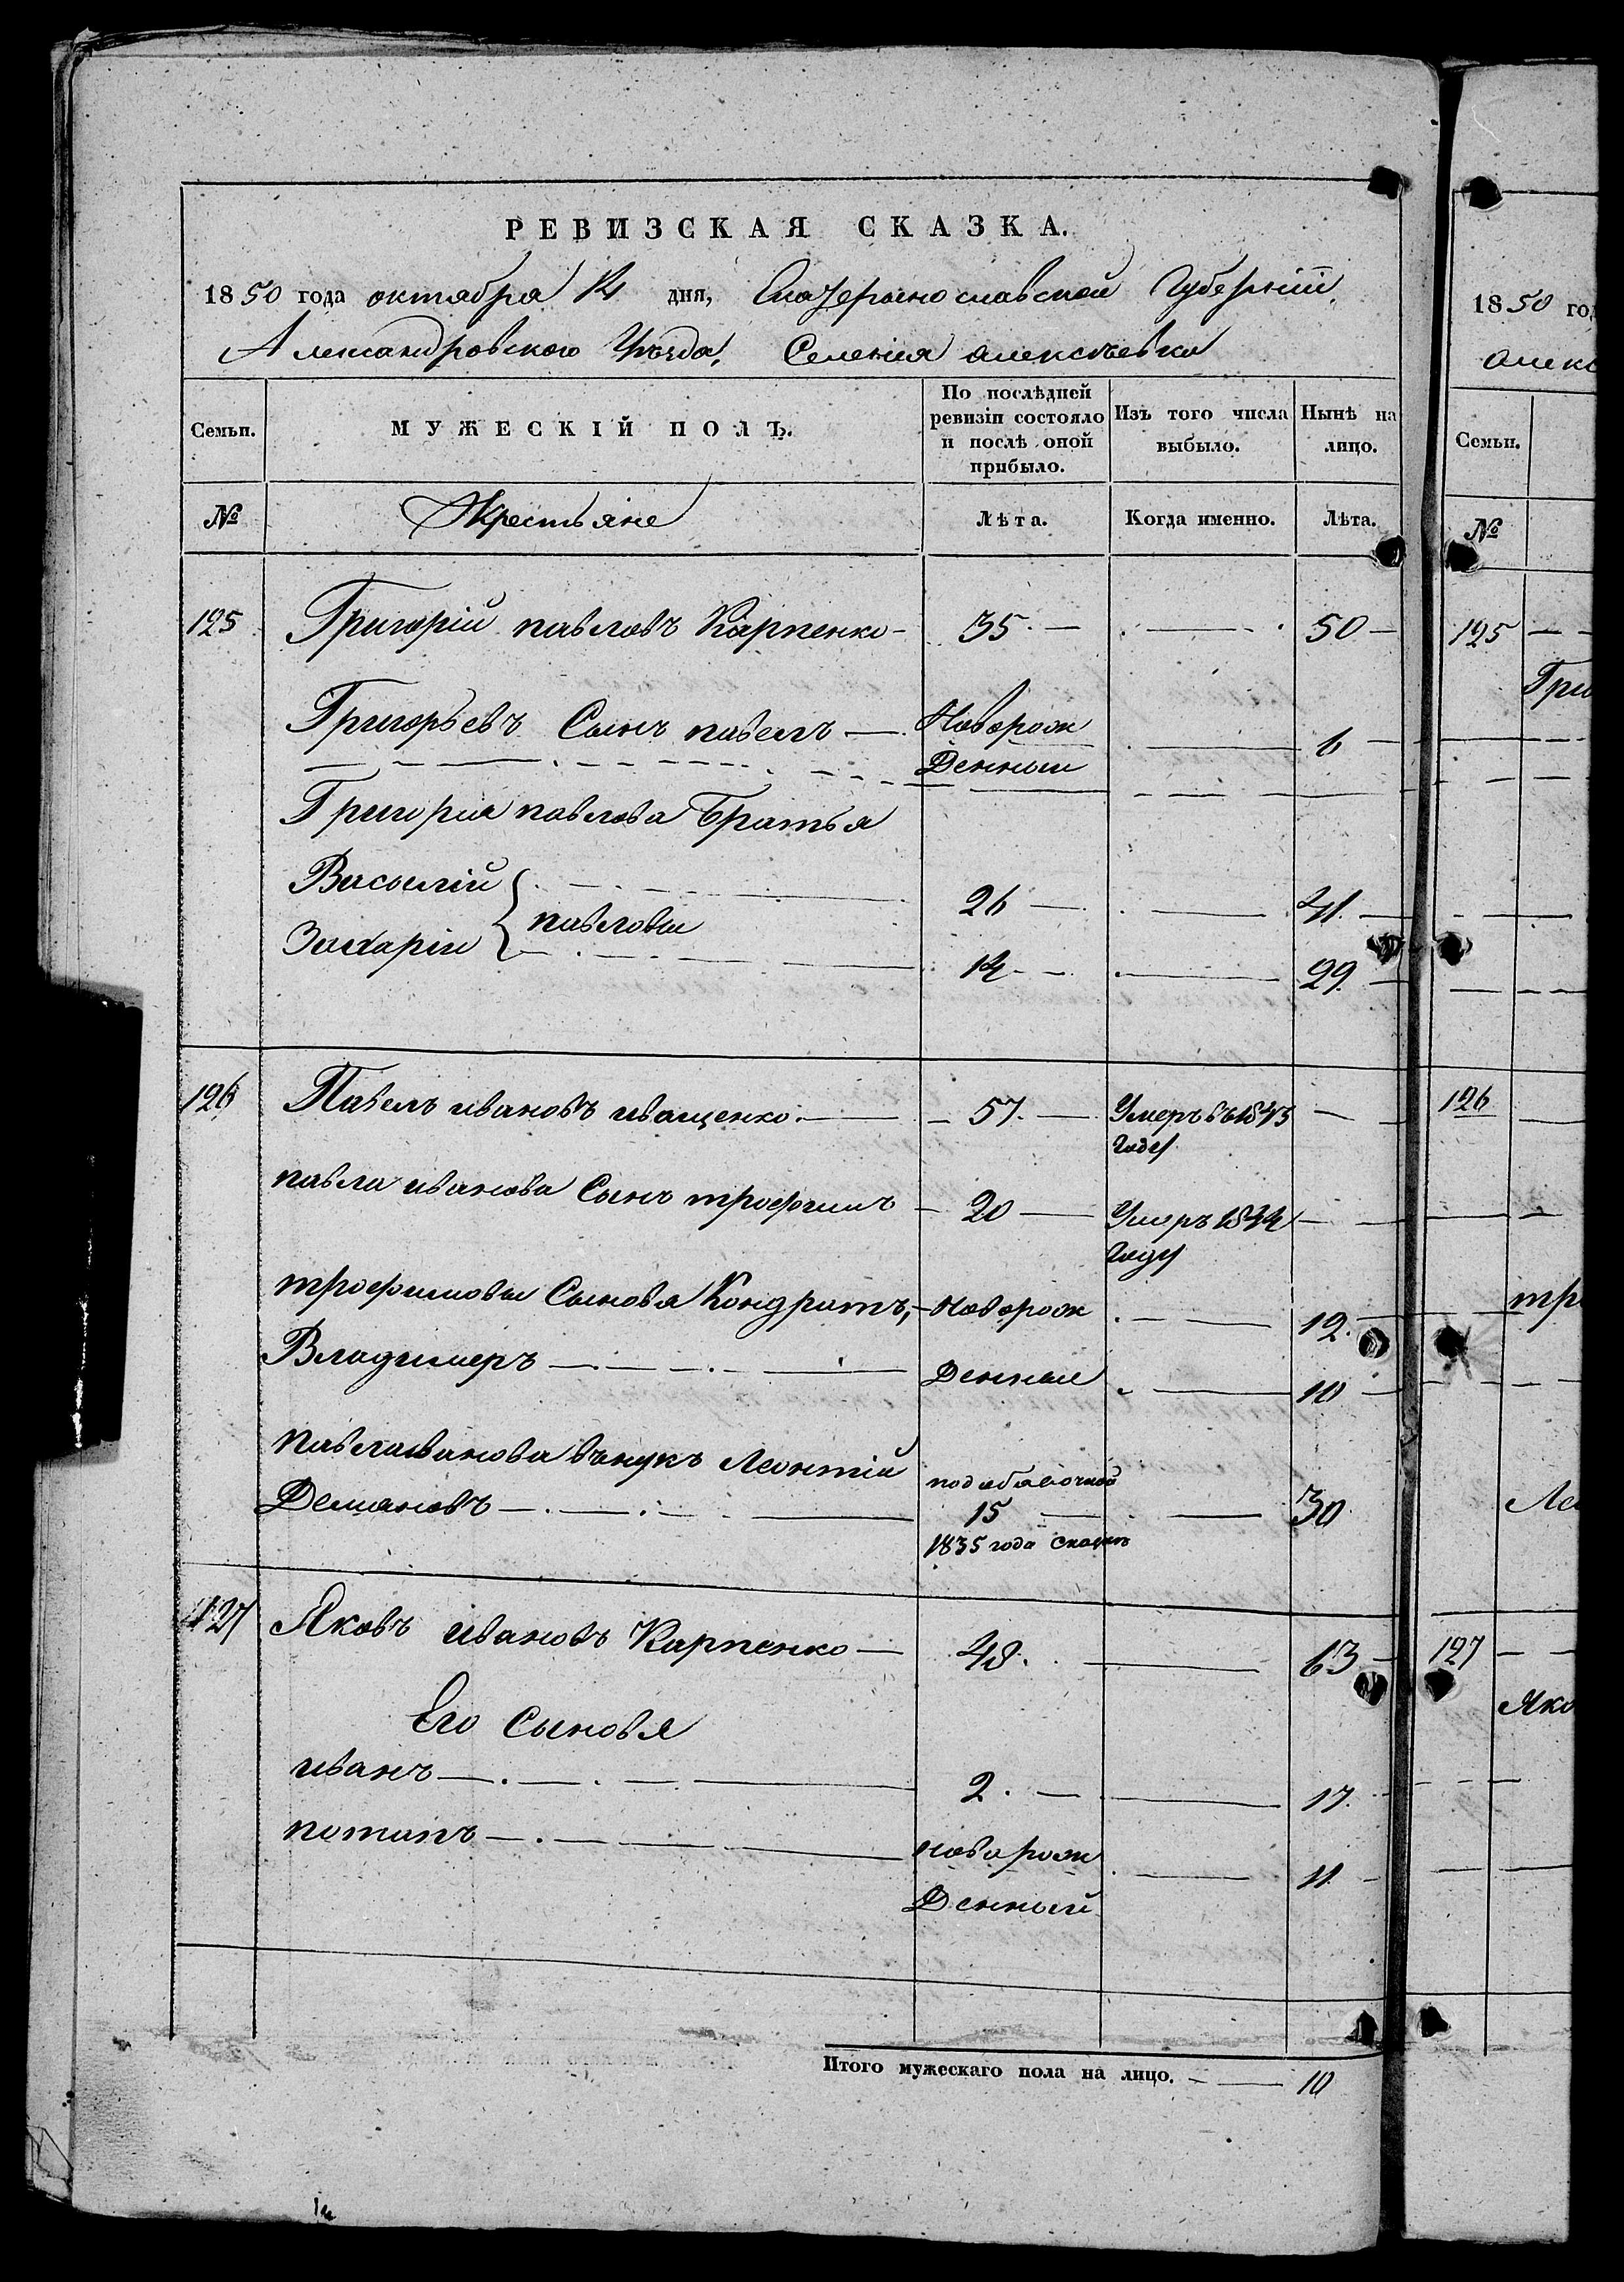 РЕВИЗСКАЯ СКАЗКА.
1850 года октября 14 дня, Екатеринославской Губернии,
Александровского Уѣзда, Селения алексѣевки
Семьи. МУЖЕСКІЙ ПОЛЪ. По послѣдней ревизіи состояло и послѣ оной прибыло. Изъ того числа выбыло. Нынѣ на лицо.
№ Крестьяне Лѣта. Когда именно. Лѣта.
125 Григорій павловъ Карпенко 35. 50
Григорьевъ Сынъ павелъ Новорож 6
Денный
Григория павлова Братья
Василій 26 41.
павловы
Захарій 14 29.
126 Павелъ ивановъ иващенко. 57. Умеръ въ 1843
Году
павла иванова Сынъ трофимъ 20 Умеръ 1844
Году
трофимовы Сыновя Кондратъ, Новорож 12.
Владимеръ Денные 10
Павла иванова внукъ Леонтій подобавочной
Демяновъ 15 30
1835 года скаски
127 Яковъ ивановъ Карпенко 48. 63
Его Сыновя
иванъ 2. 17.
потапъ новорож 11.
Денный
Итого мужескаго пола на лицо. 10
1850 го
алекс
Семьи.
№
125
Гри
126
тро
Ле
127
Яко